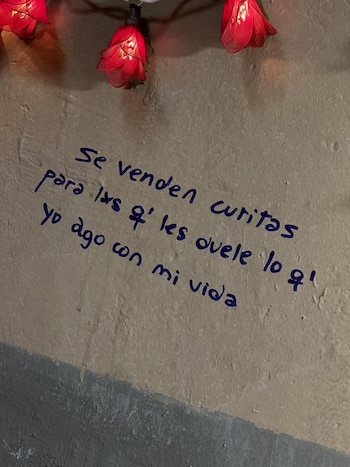 Se venden curitas
para lxs q' les duele lo q'
yo ago con mi vida